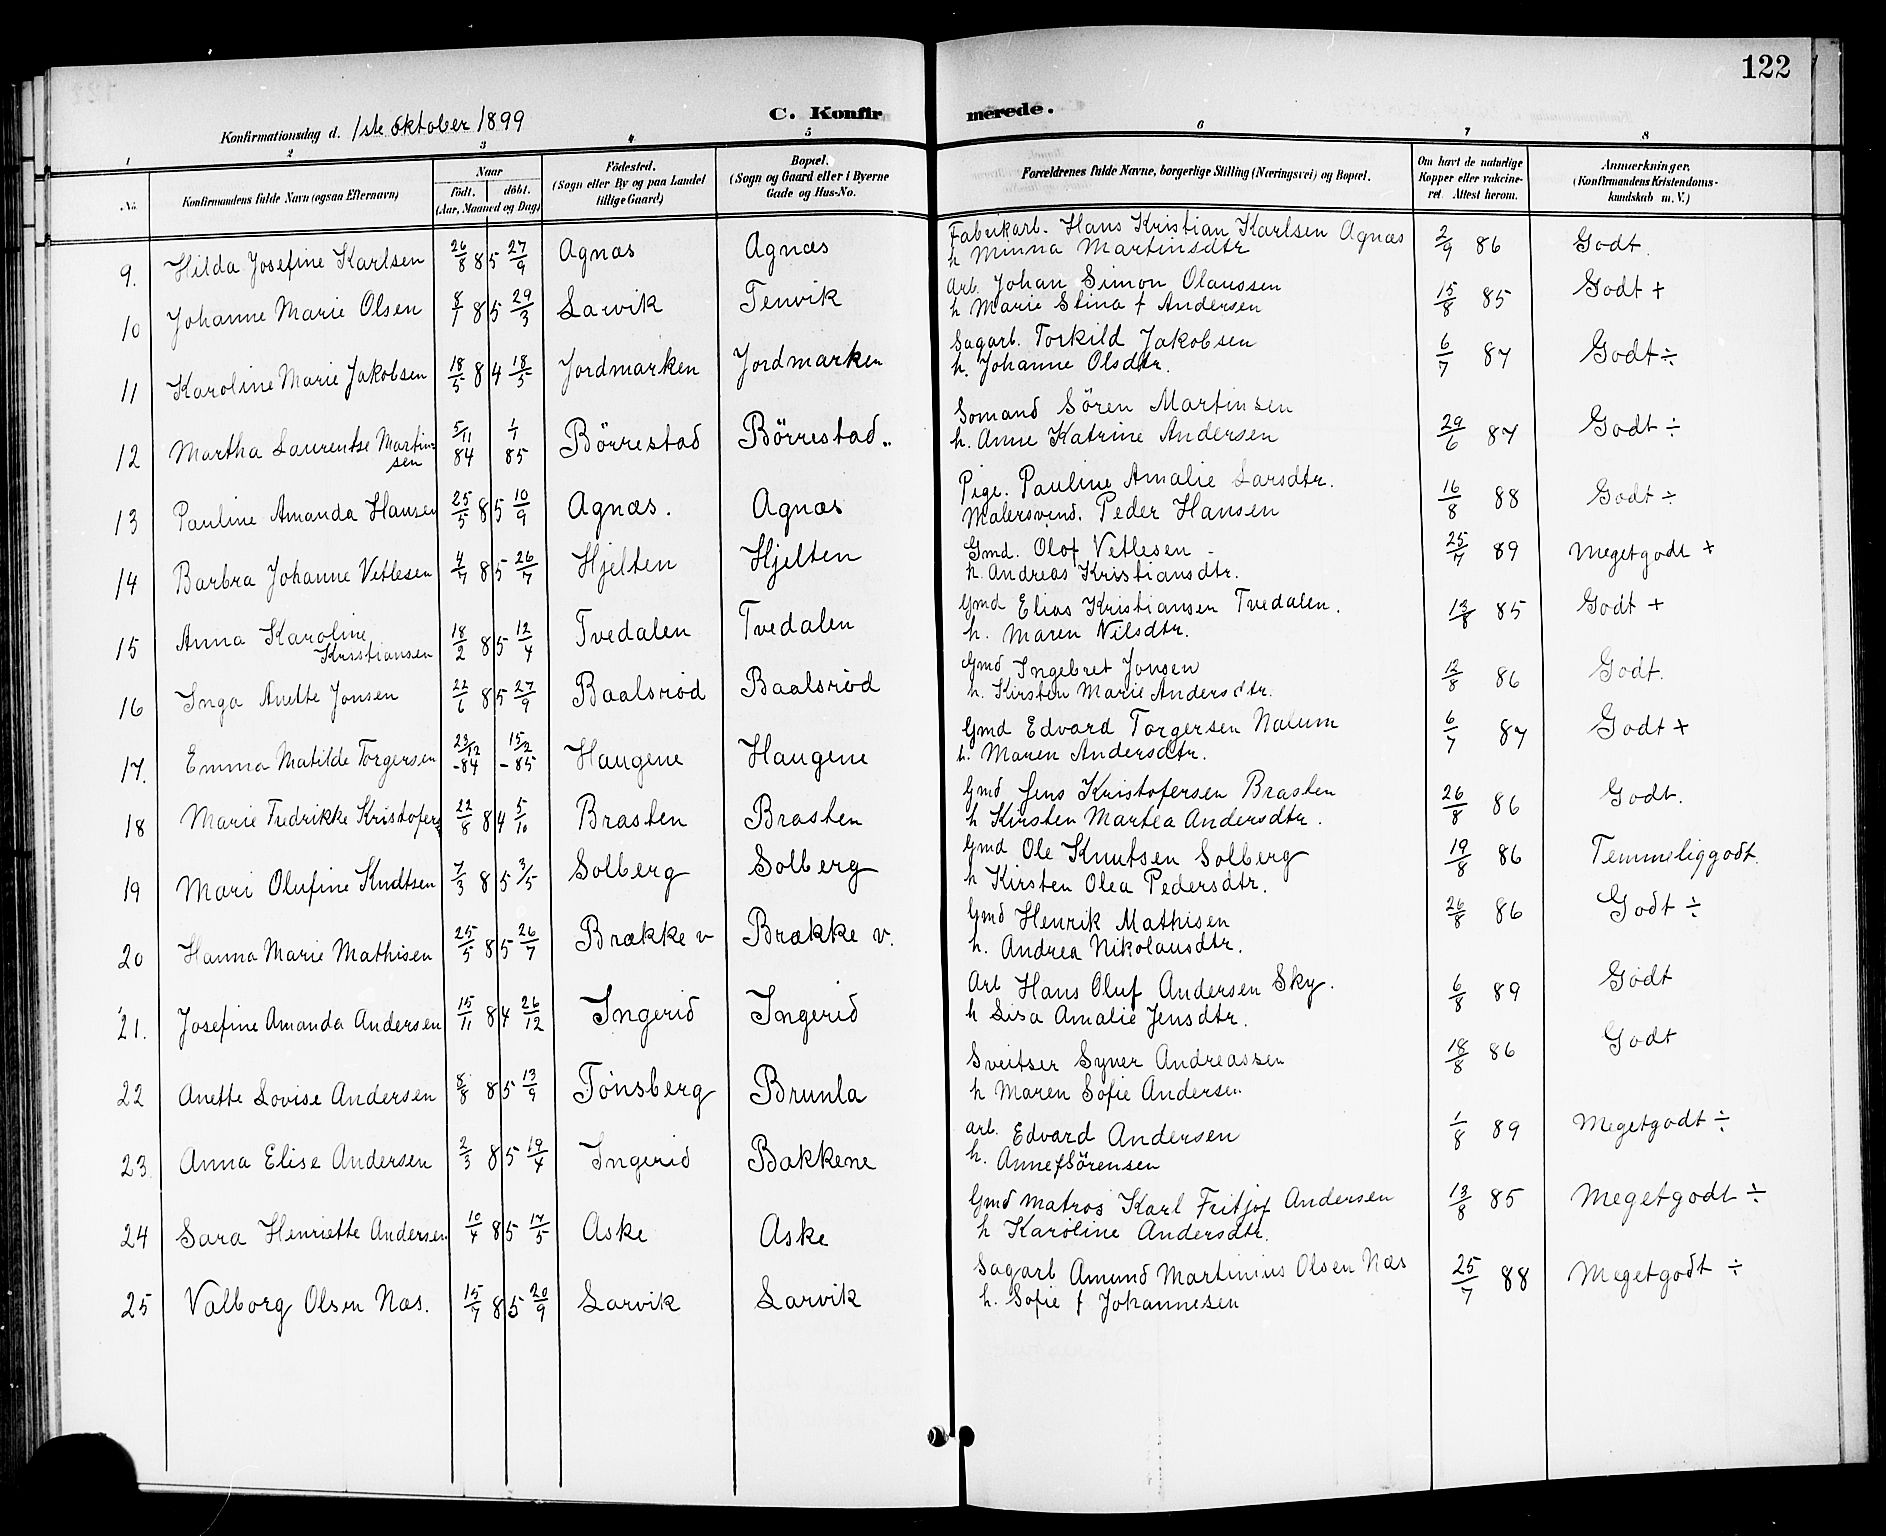 122
Konfirmationsdag d. 1ste oktober 1899 C. Konfir merede.
1 2 3 4 5 6 7 8
No. Konfirmandens fulde Navn (ogsaa Efternavn) Naar født. døbt. (Aar, Maaned og Dag) Fødested. (Sogn eller By og paa Landet tillige Gaard) Bopæl. (Sogn og Gaard eller i Byerne Gade og Hus-No. Forældrenes fulde Navne, borgerlige Stilling (Næringsvei) og Bopæl. Om havt de naturlige Kopper eller vakcineret. Attest herom. Anmærkninger. (Konfirmandens Kristendomskundskab m. V.)
9. Hilda Josefine Karlsen 26/8 85 27/9 Agnæs Agnæs Fabrikarb. Hans Kristian Karlsen Agnæs 2/9 86 Godt.
h Minna Martinsdtr
10 Johanne Marie Olsen 8/1 85 29/3 Larvik Tenvik Arb. Johan Simon Olaussen 15/8 85 Godt +
h Marie Stina f Andersen
11 Karoline Marie Jakobsen 18/5 84 18/5 Jordmarken Jordmarken Sagarb. Torkild Jakobsen 6/7 87 Godt ÷
h. Johanne Olsdtr.
12 Martha Laurentse Martin 5/11 84 1/1 85 Börrestad Börrestad.. Sömand Sören Martinsen 29/6 87 Godt ÷
sen h. Anne Katrine Andersen
13 Pauline Amanda Hansen 25/5 85 10/9 Agnæs. Agnæs Pige. Pauline Amalie Larsdtr. 16/8 88 Godt ÷
Malersvend. Peder Hansen
14 Barbra Johanne Vetlesen 4/7 85 26/7 Hjelten Hjelten Gmd. Olof Vetlesen 25/7 89 Megetgodt +
h. Andreas Kristiansdtr.
15 Anna Karoline 18/2 85 12/4 Tvedalen Tvedalen Gmd Elias Kristiansen Tvedalen. 13/8 85 Godt +
Kristiansen h. Maren Nilsdtr.
16 Inga Anette Jonsen 22/6 85 27/9 Baalsröd Baalsröd Gmd Ingebret Jonsen 12/8 86 Godt.
h. Kirsten Marie Andersdtr.
17. Emma Matilde Torgersen 23/12 -84 15/2 -85 Haugene Haugene Gmd Edvard Torgersen Nalum 6/7 87 Godt +
h. Maren Andersdtr.
18 Marie Fredrikke Kristofers 22/8 84 5/10 Brasten Brasten Gmd Jens Kristofersen Brasten 26/8 86 Godt.
h Kirsten Martea Andersdtr.
19 Mari Olufine Kndtsen 7/3 85 3/5 Solberg Solberg Gmd Ole Knutsen Solberg 19/8 86 Temmeliggodt.
h Kirsten Olea Pedersdtr.
20 Hanna Marie Mathisen 25/5 85 26/7 Brække v Brække v. Gmd Henrik Mathisen 26/8 86 Godt ÷
h. Andrea Nikolausdtr.
21. Josefine Amanda Andersen 15/11 84 26/12 Ingerid Ingerid Arb Hans Oluf Andersen Sky. 6/8 89 Godt
h Lisa Amalie Jensdtr.
22 Anette Lovise Andersen 8/8 85 13/9 Tönsberg Brunla Sveitser Syver Andreassen 18/8 86 Godt
h Maren Sofie Andersen
23. Anna Elise Andersen 2/3 85 19/4 Ingerid Bakkene arb. Edvard Andersen 1/8 89 Megetgodt ÷
h. Anne f Sörensen
24 Sara Henriette Andersen 10/4 85 17/5 Aske Aske Gmd Matros Karl Fritjof Andersen 13/8 85 Megetgodt ÷
h Karoline Andersdtr.
25 Valborg Olsen Næs. 15/7 85 20/9 Larvik Larvik Sagarb Amund Martinius Olsen Næs 25/7 88 Megetgodt ÷
h. Sofie f Johannesen